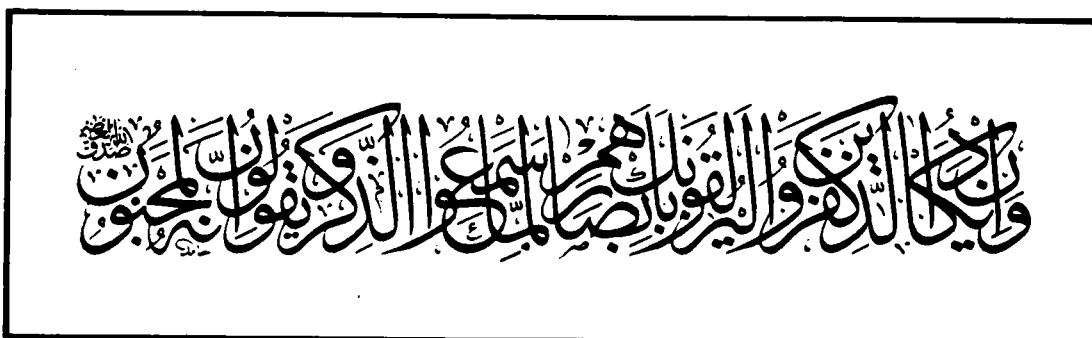 وَإِنْ يَكَادُ الَّذِينَ كَفَرُوا لَيُزْلِقُونَكَ بِأَبْصَارِهِمْ لَمَّا سَمِعُوا الذِّكْرَ وَيَقُولُونَ إِنَّهُ لَمَجْنُونٌ
صدق الله العظيم